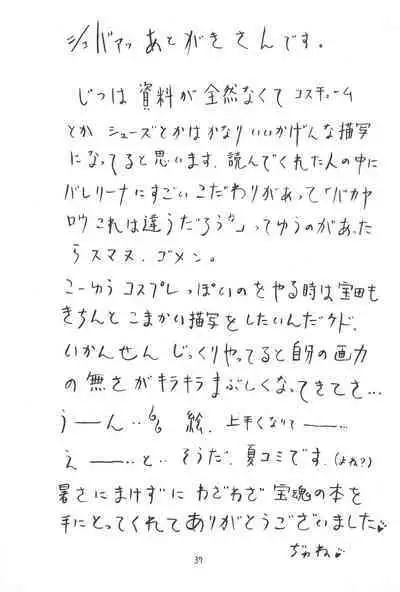 シュバァッ あとがきさんです。
じつは 資料が 全然なくて コスチューム
とか シューズとかは かなり いいかげんな描写
になってると思います. 読んでくれた人の中に
バレリーナにすごいこだわりがあって「バカヤ
ロウ これは違うだろうが」ってゆうのがあった
らスマヌ. ゴメン。
こーゆう コスプレっぽいのをやる時は宝田も
きちんと こまかい描写をしたいんだケド.
いかんせん じっくりやってると自分の画力
の無さがキラキラまぶしくなってきてさ…
うーん‥ 絵. 上手くなりてー
えーと‥ そうだ. 夏コミです.(よね?)
暑さにまけずに わざわざ 宝魂の本を
手にとってくれてありがとうございました
ぢゃね
37